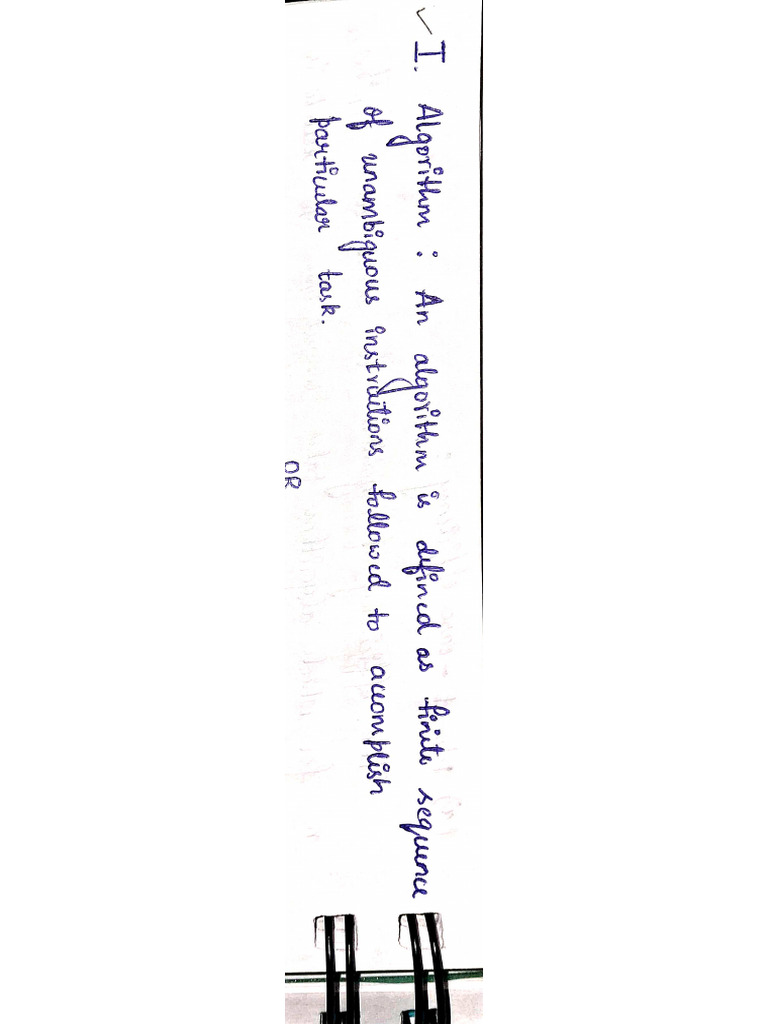 ✓ I. Algorithm : An algorithm is defined as finite sequence
of unambiguous instructions followed to accomplish
particular task.
OR